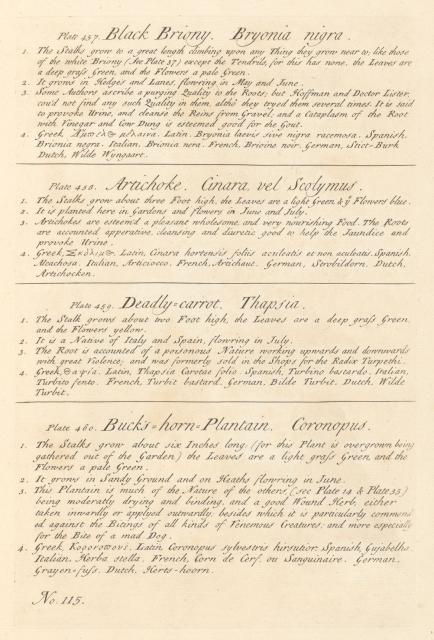 Plate 457. Black Briony. Bryonia nigra.
1. The Stalks grow to a great length climbing upon any Thing they grow near to, like those
of the white Briony (See Plate 37) except the Tendrils, for this has none, the Leaves are
a deep grass Green, and the Flowers a pale Green.
2. It grows in Hedges and Lanes, flowring in May and June.
3. Some Authors ascribe a purging Quality to the Roots; but Hoffman and Doctor Lister,
cou'd not find any such Quality in them, altho' they tryed them several times. It is said
to provoke Urine, and cleanse the Reins from Gravel; and a Cataplasm of the Root
with Vinegar and Cow Dung is esteemed good for the Gout.
4. Greek, Ἄμπελ⊕ μέλαινα. Latin, Bryonia laevis sive nigra racemosa. Spanish,
Brionia negra. Italian, Brionia nera. French, Brioine noir. German, Stict-Burk
Dutch, Wilde Wyngaart.
Plate 458. Artichoke. Cinara, vel Scolymus.
1. The Stalks grow about three Foot high, the Leaves are a light Green & yͤ Flowers blue.
2. It is planted here in Gardens and flowers in June and July.
3. Artichokes are esteem'd a pleasant wholesome, and very nourishing Food. The Roots
are accounted apperative, cleansing and diuretic, good to help the Jaundice and
provoke Urine.
4. Greek, Σκόλυμ⊕. Latin, Cinara hortensis foliis aculeatis et non aculeatis. Spanish,
Alcachosa. Italian, Articiocco. French, Artichaut. German, Strobildorn. Dutch,
Artichocken.
Plate 459. Deadly=carrot. Thapsia.
1. The Stalk grows about two Foot high, the Leaves are a deep grass Green,
and the Flowers yellow.
2. It is a Native of Italy and Spain, flowring in July.
3. The Root is accounted of a poisonous Nature working upwards and downwards
with great Violence; and was formerly sold in the Shops for the Radix Turpethi.
4. Greek, Θαψία. Latin, Thapsia Carotae folio. Spanish, Turbino bastardo. Italian,
Turbito fento. French, Turbit bastard. German, Bilde Turbit. Dutch, Wilde
Turbit.
Plate 460. Buck's=horn=Plantain. Coronopus.
1. The Stalks grow about six Inches long, (for this Plant is overgrown being
gathered out of the Garden) the Leaves are a light grass Green, and the
Flowers a pale Green.
2. It grows in Sandy Ground and on Heaths flowring in June.
3. This Plantain is much of the Nature of the others (see Plate 14 & Plate 35)
being moderately drying and binding, and a good Wound Herb, either
taken inwardly or applyed outwardly, besides which it is particularly commend
ed against the Bitings of all kinds of Venemous Creatures; and more especially
for the Bite of a mad Dog.
4. Greek, Κορορωπους. Latin Coronopus sylvestris hirsutior. Spanish, Gujabelha.
Italian, Herba stella. French, Corn de Cerf, ou Sanguinaire. German,
Grayen=fuss. Dutch, Herts-hoorn.
No. 115.